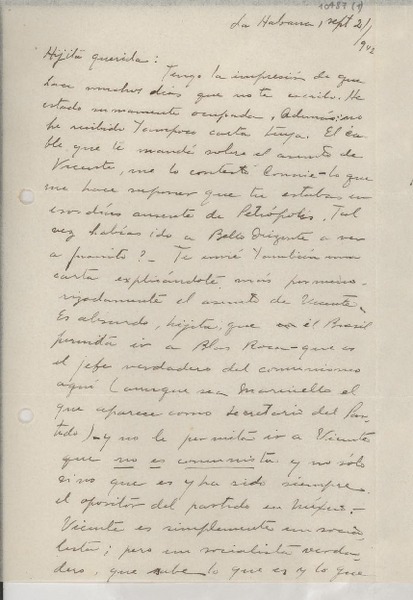 10487 (1)
La Habana, sept 21/
1942
Hijita querida:
Tengo la impresión de que
hace muchos días que no te escribo. He
estado sumamente ocupada. Además, no
he recibido tampoco carta tuya. El ca-
ble que te mandé sobre el asunto de
Vicente, me lo contestó Connie - lo que
me hace suponer que tu estabas en
esos días ausente de Petrópolis. Tal
vez habías ido a Bello Orizonte a ver
a Juanito? - Te envié también una
carta explicándote más pormeno-
rizadamente el asunto de Vicente -
Es absurdo, hijita, que el Brasil
permita ir a Blas Roca - que es
el jefe verdadero del comunismo
aquí (aunque sea Marinello el
que aparece como Secretario del Par-
tido) - y no le permita ir a Vicente
que no es comunista y no sólo
sino que es y ha sido siempre
el opositor del partido en México -
Vicente es simplemente un socia-
lista; pero un socialista verda-
dero, que sabe lo que es y lo que